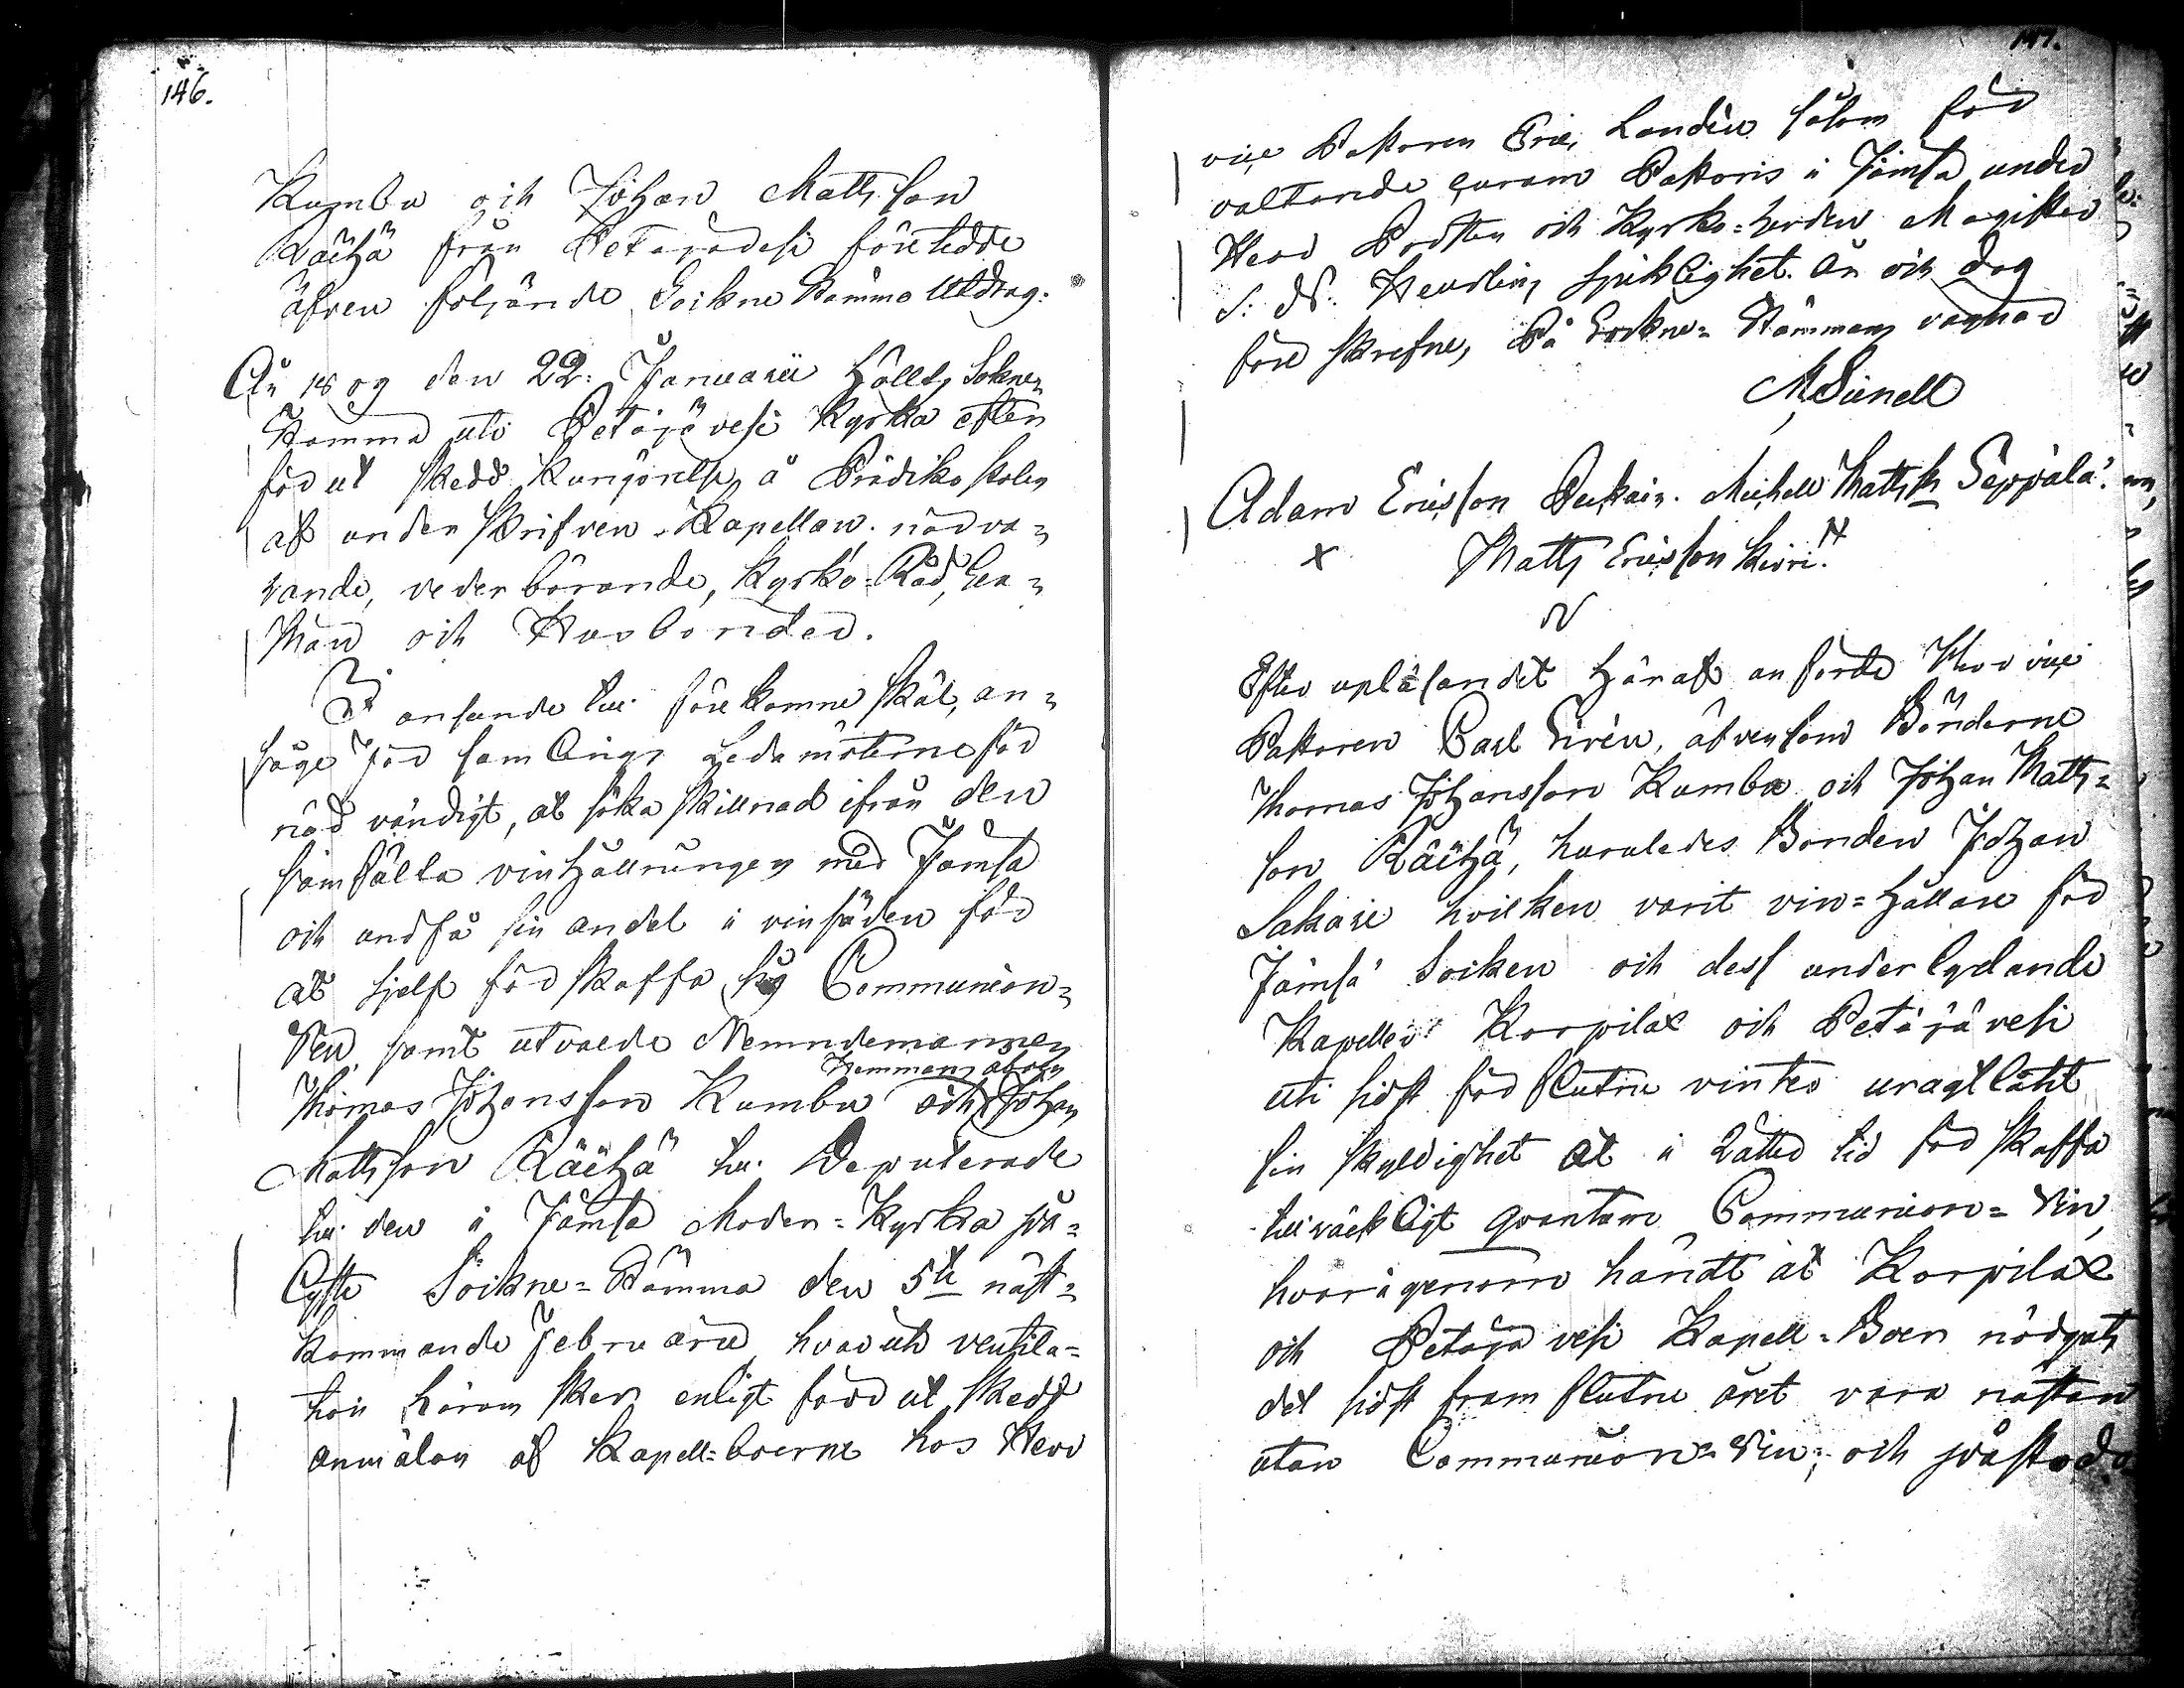 146.
Kumbu och Johan Mattsson
Räihä från Petäjävesi företedde
äfven följande Sockne Stämmo Utdrag:
År 1809 den 22: Januarii hölts Sokne-
Stämma uti Petäjävesi Kyrka efter
förut skedd kungörelse å Prediko stolen
af under skrifven Kapellan. närva-
rande, vederbörande, Kyrko-Råd, Sex-
Män och Husbönder.
I anseende till förekomne skäl, an-
såge För samlings Ledamöterne för
nödvändigt, at söka skillnad ifrån den
samfälta vinhållningen med Jämsä
och undfå sin andel i vinsäden för
at sjelf förskaffa sig Communion-
Vin, samt utvalde Nemndemannen
Thomas Johansson Kumbu och Hemmans åboen Johan
Mattsson Räihä till Deputerade
till den i Jämsä Moder-Kyrka på-
lyste Sockne-Stämma den 5te näst-
kommande Februarii hvaruti ventila-
tion härom sker enligt förut skedd
anmälan af Kapell-boerne hos Herr
147.
vice Pastoren Eric Londén såsom för
valtande curam Pastoris i Jämsä under
Herr Prosten och Kyrko-herden Magister
sjuklighet. År och dag
före skrefne, På Sockne-Stämmans vägnar
Adam Ericsson Michell Mattss Seppälä.
x Matts Ericsson N
N
Efter upläsandet häraf anförde Herr vice
Pastoren Carl Sirén, äfvensom Bönderne
Thomas Johansson Kumbu och Johan Matts-
son Räihä, huruledes Bonden Johan
Sakari hvilken varit vin-hållare för
Jämsä Socken och dess underlydande
Kapeller Korpilax och Petäjävesi
uti sidst förflutne vinter uraktlåtit
sin skyldighet at i rättan tid förskaffa
tillräckligt quantum Communion-Vin,
hvarigenom händt at Korpilax
och Petäjävesi Kapell-Boer nödgats
det sidst framflutne året vara nästan
utan Communion-Vin; och påstodo